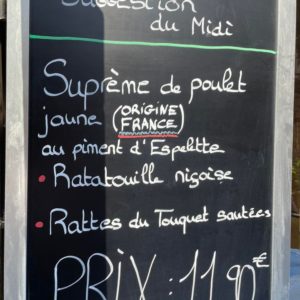 Suggestion
du Midi
Suprème de poulet
jaune (ORIGINE FRANCE)
au piment d'Espelette
• Ratatouille niçoise
• Rattes du Touquet sautées
PRIX : 11,90€